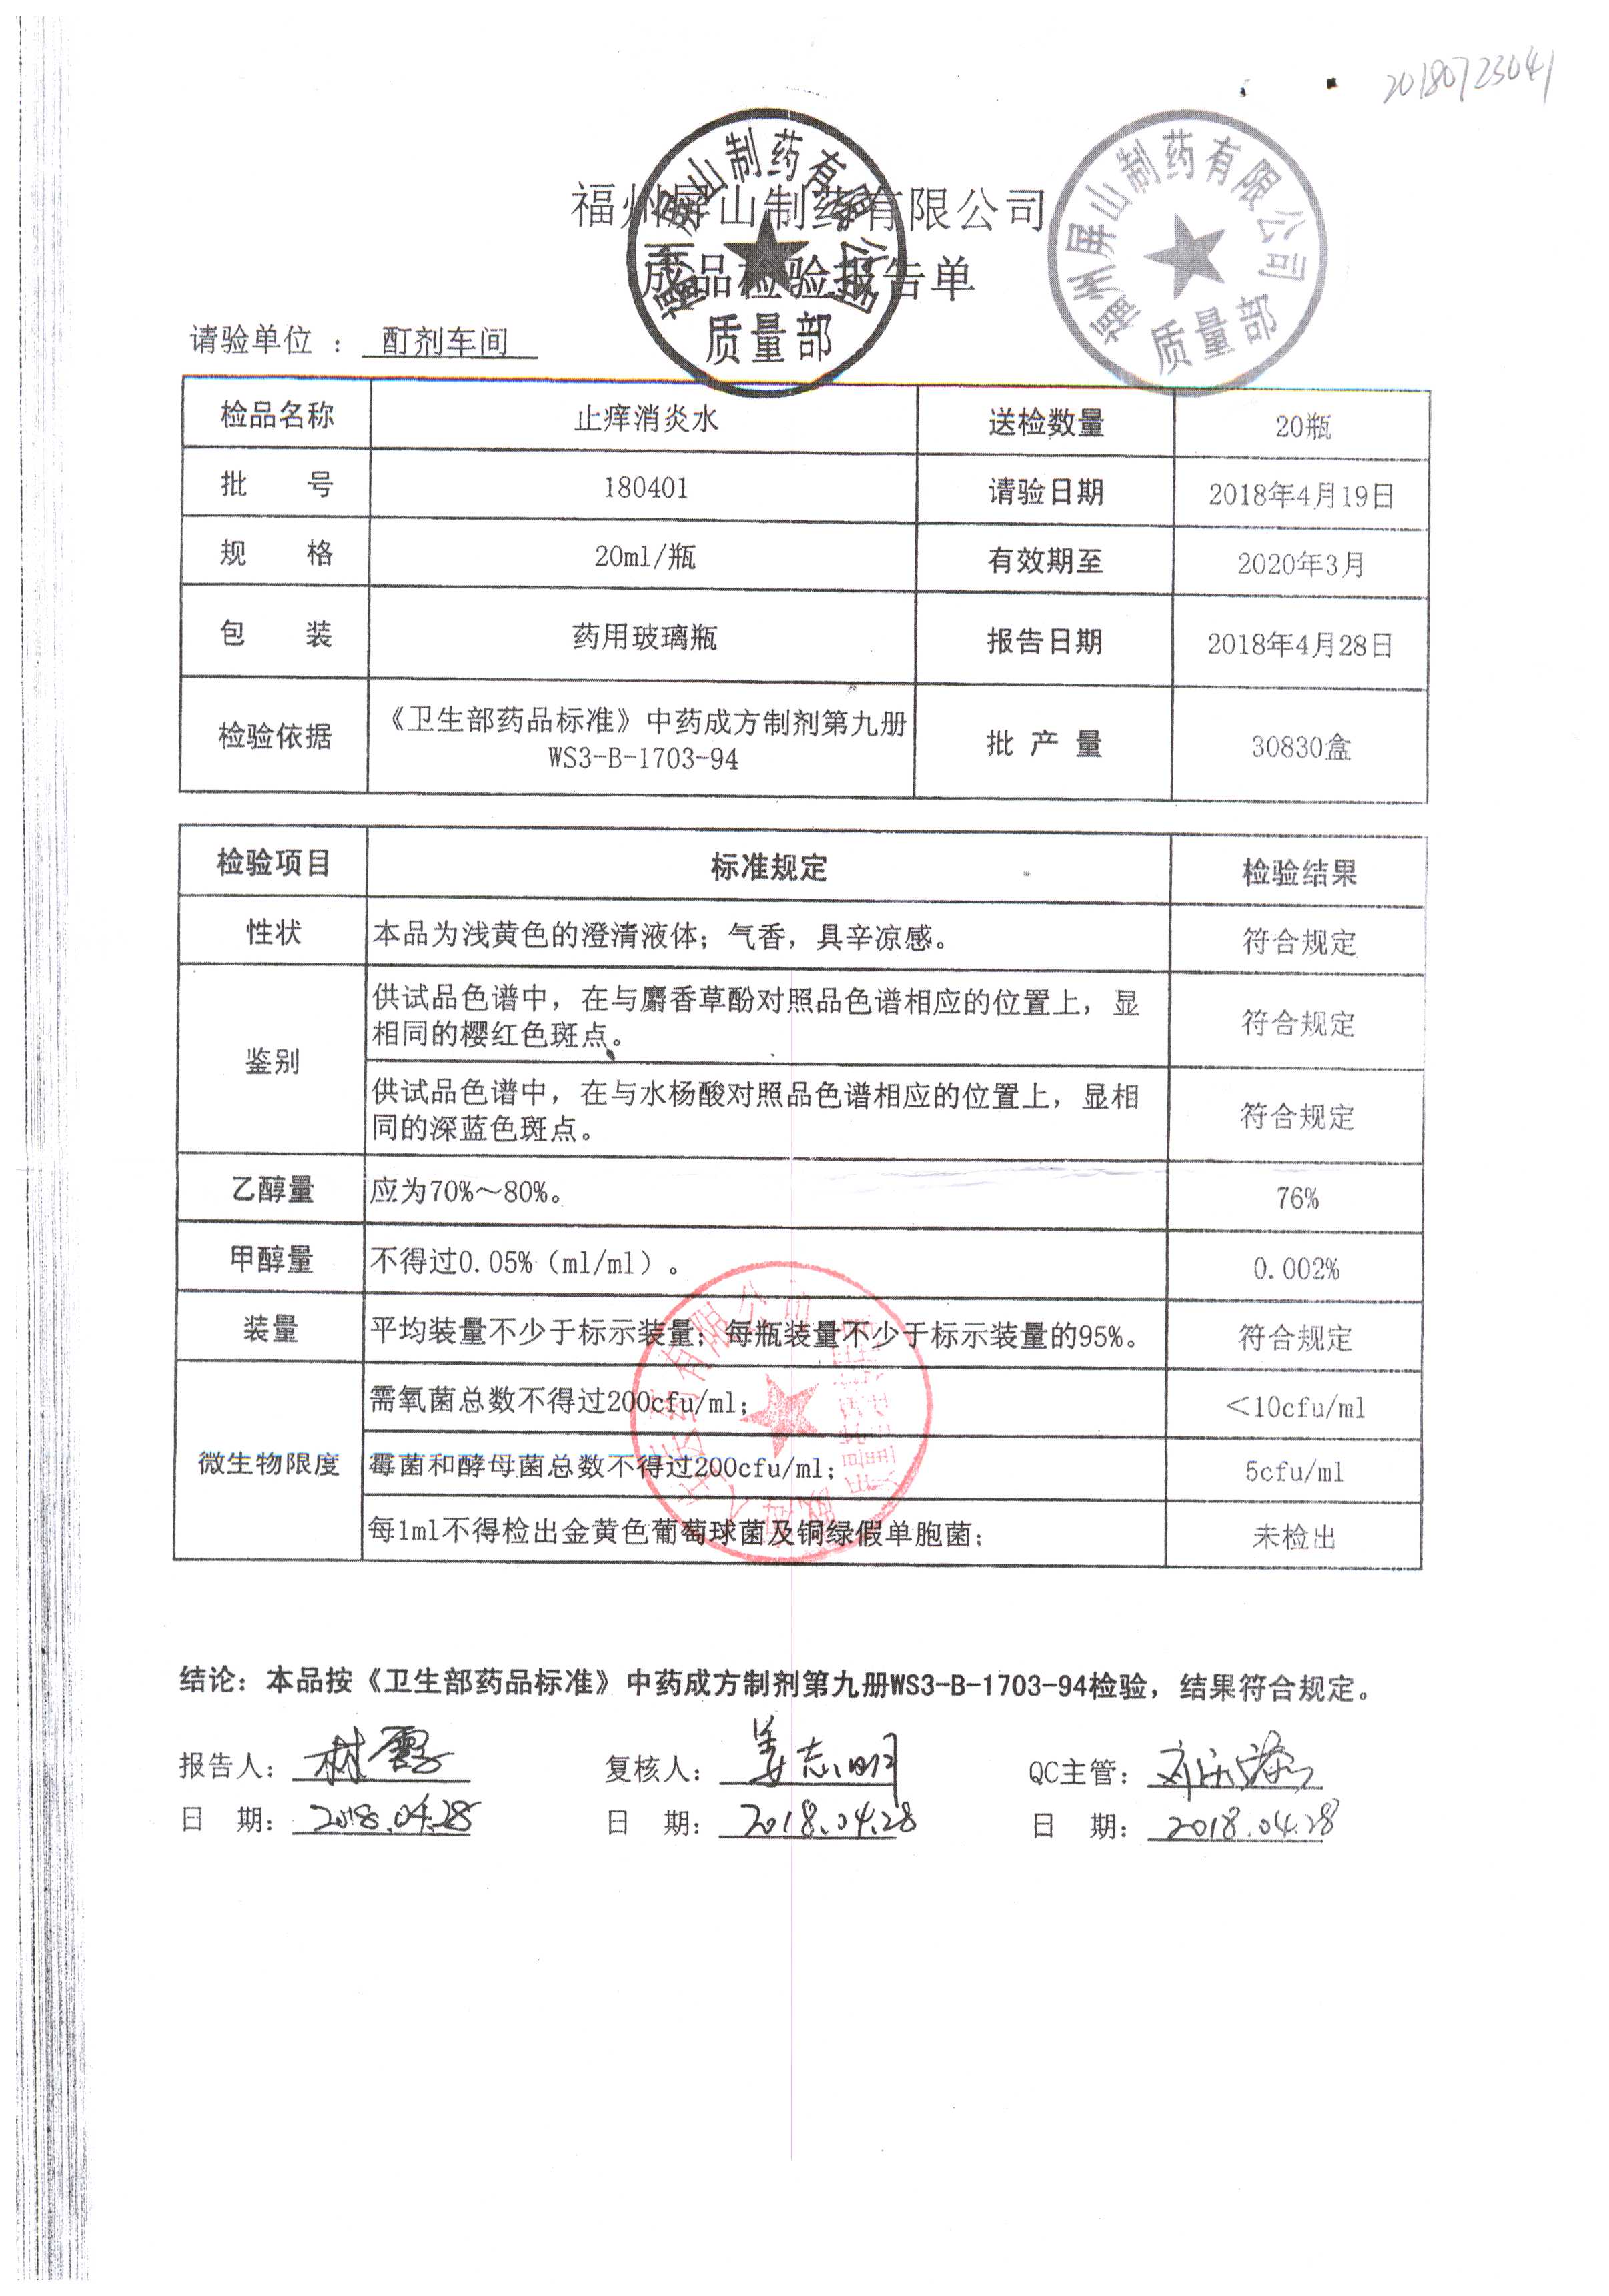 20180723041
福州屏山制药有限公司
成品检验报告单
福州屏山制药有限公司
质量部
福州屏山制药有限公司
质量部
请验单位 ： 酊剂车间
检品名称 止痒消炎水 送检数量 20瓶
批 号 180401 请验日期 2018年4月19日
规 格 20ml/瓶 有效期至 2020年3月
包 装 药用玻璃瓶 报告日期 2018年4月28日
检验依据 《卫生部药品标准》中药成方制剂第九册
WS3-B-1703-94 批 产 量 30830盒
检验项目 标准规定 检验结果
性状 本品为浅黄色的澄清液体；气香，具辛凉感。 符合规定
鉴别 供试品色谱中，在与麝香草酚对照品色谱相应的位置上，显
相同的樱红色斑点。 符合规定
供试品色谱中，在与水杨酸对照品色谱相应的位置上，显相
同的深蓝色斑点。 符合规定
乙醇量 应为70%～80%。 76%
甲醇量 不得过0.05%（ml/ml）。 0.002%
装量 平均装量不少于标示装量；每瓶装量不少于标示装量的95%。 符合规定
微生物限度 需氧菌总数不得过200cfu/ml； <10cfu/ml
霉菌和酵母菌总数不得过200cfu/ml； 5cfu/ml
每1ml不得检出金黄色葡萄球菌及铜绿假单胞菌； 未检出
有限公司
结论：本品按《卫生部药品标准》中药成方制剂第九册WS3-B-1703-94检验，结果符合规定。
报告人： 复核人： 姜志明 QC主管：
日 期： 2018.04.28 日 期： 2018.04.28 日 期： 2018.04.28